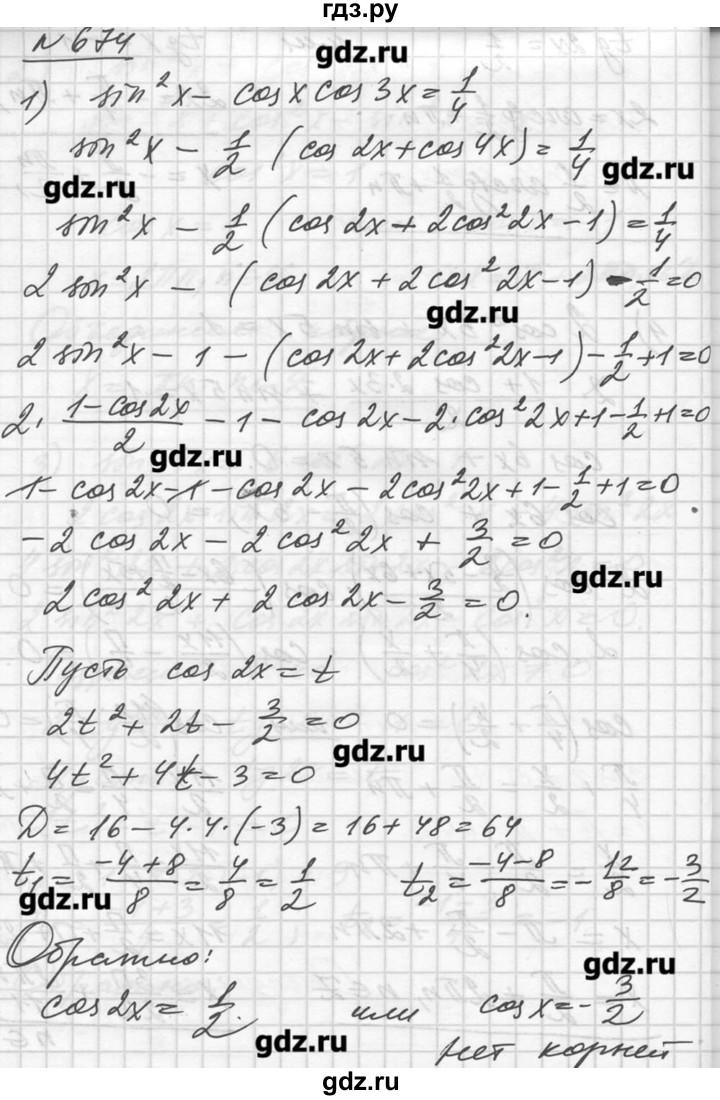 гдз.ру
№ 674
gdz.ru
1) sin²x - cos x cos 3x = 1/4
sin²x - 1/2 (cos 2x + cos 4x) = 1/4
gdz.ru
gdz.ru
sin²x - 1/2 (cos 2x + 2cos²2x - 1) = 1/4
2 sin²x - (cos 2x + 2cos²2x - 1) - 1/2 = 0
gdz.ru
2 sin²x - 1 - (cos 2x + 2cos²2x - 1) - 1/2 + 1 = 0
2 · (1 - cos 2x)/2 - 1 - cos 2x - 2 · cos²2x + 1 - 1/2 + 1 = 0
gdz.ru
1 - cos 2x - 1 - cos 2x - 2cos²2x + 1 - 1/2 + 1 = 0
-2 cos 2x - 2 cos²2x + 3/2 = 0
gdz.ru
2 cos²2x + 2 cos 2x - 3/2 = 0.
Пусть cos 2x = t
2t² + 2t - 3/2 = 0
gdz.ru
4t² + 4t - 3 = 0
D = 16 - 4·4·(-3) = 16 + 48 = 64
t₁ = (-4+8)/8 = 4/8 = 1/2 t₂ = (-4-8)/8 = -12/8 = -3/2
gdz.ru
Обратно:
gdz.ru
cos 2x = 1/2. или cos x = -3/2
gdz.ru
нет корней
gdz.ru